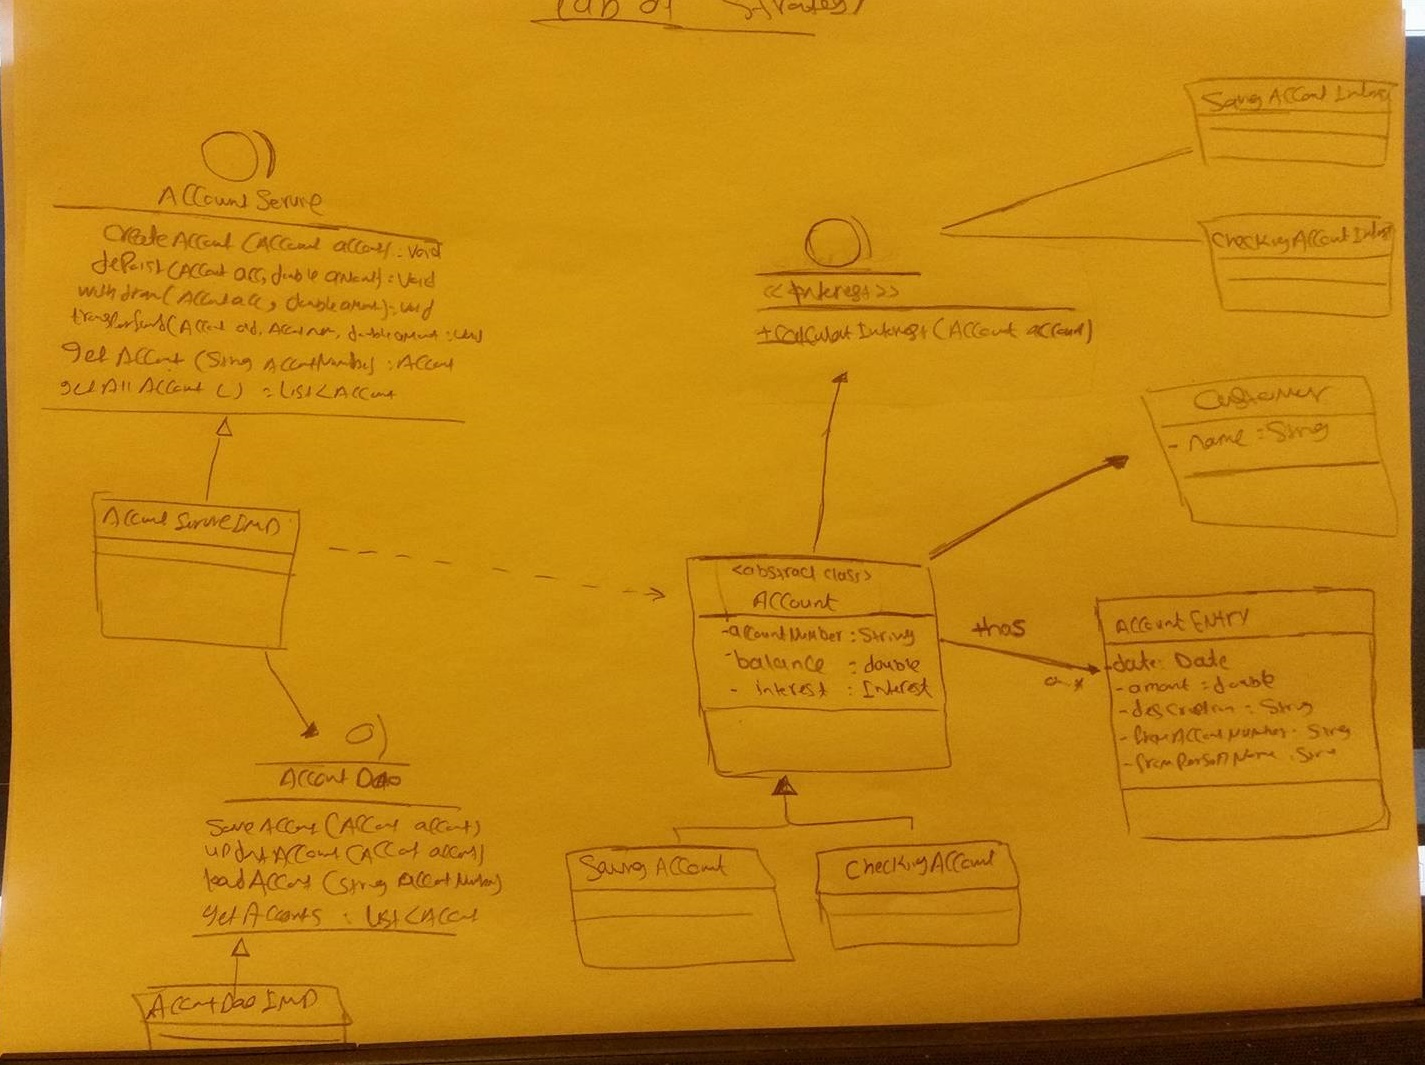 Lab of Strategy
Account Service
CreateAccount (Account account): Void
deposit (Account acc, double amount): Void
withdraw (Account acc, double amount): void
Account old, Account , double amount : void
get Account (String AccountNumber) : Account
getAll Account () : List<Account
Account Service IMP
Account Dao
Save Account (Account account)
updateAccount (Account account)
load Account (String AccountNumber)
get Accounts : List<Account
AccountDao IMP
<<Interest>>
+calculatInterest (Account account)
Saving Account Interest
Checking Account Interest
Customer
- name : String
<abstract class>
Account
-accountNumber : String
-balance : double
- interest : Interest
+has
*
Account ENtry
-date: Date
-amount : double
-description : String
-fromAccountNumber : String
-fromPersonName : String
Saving Account
Checking Account